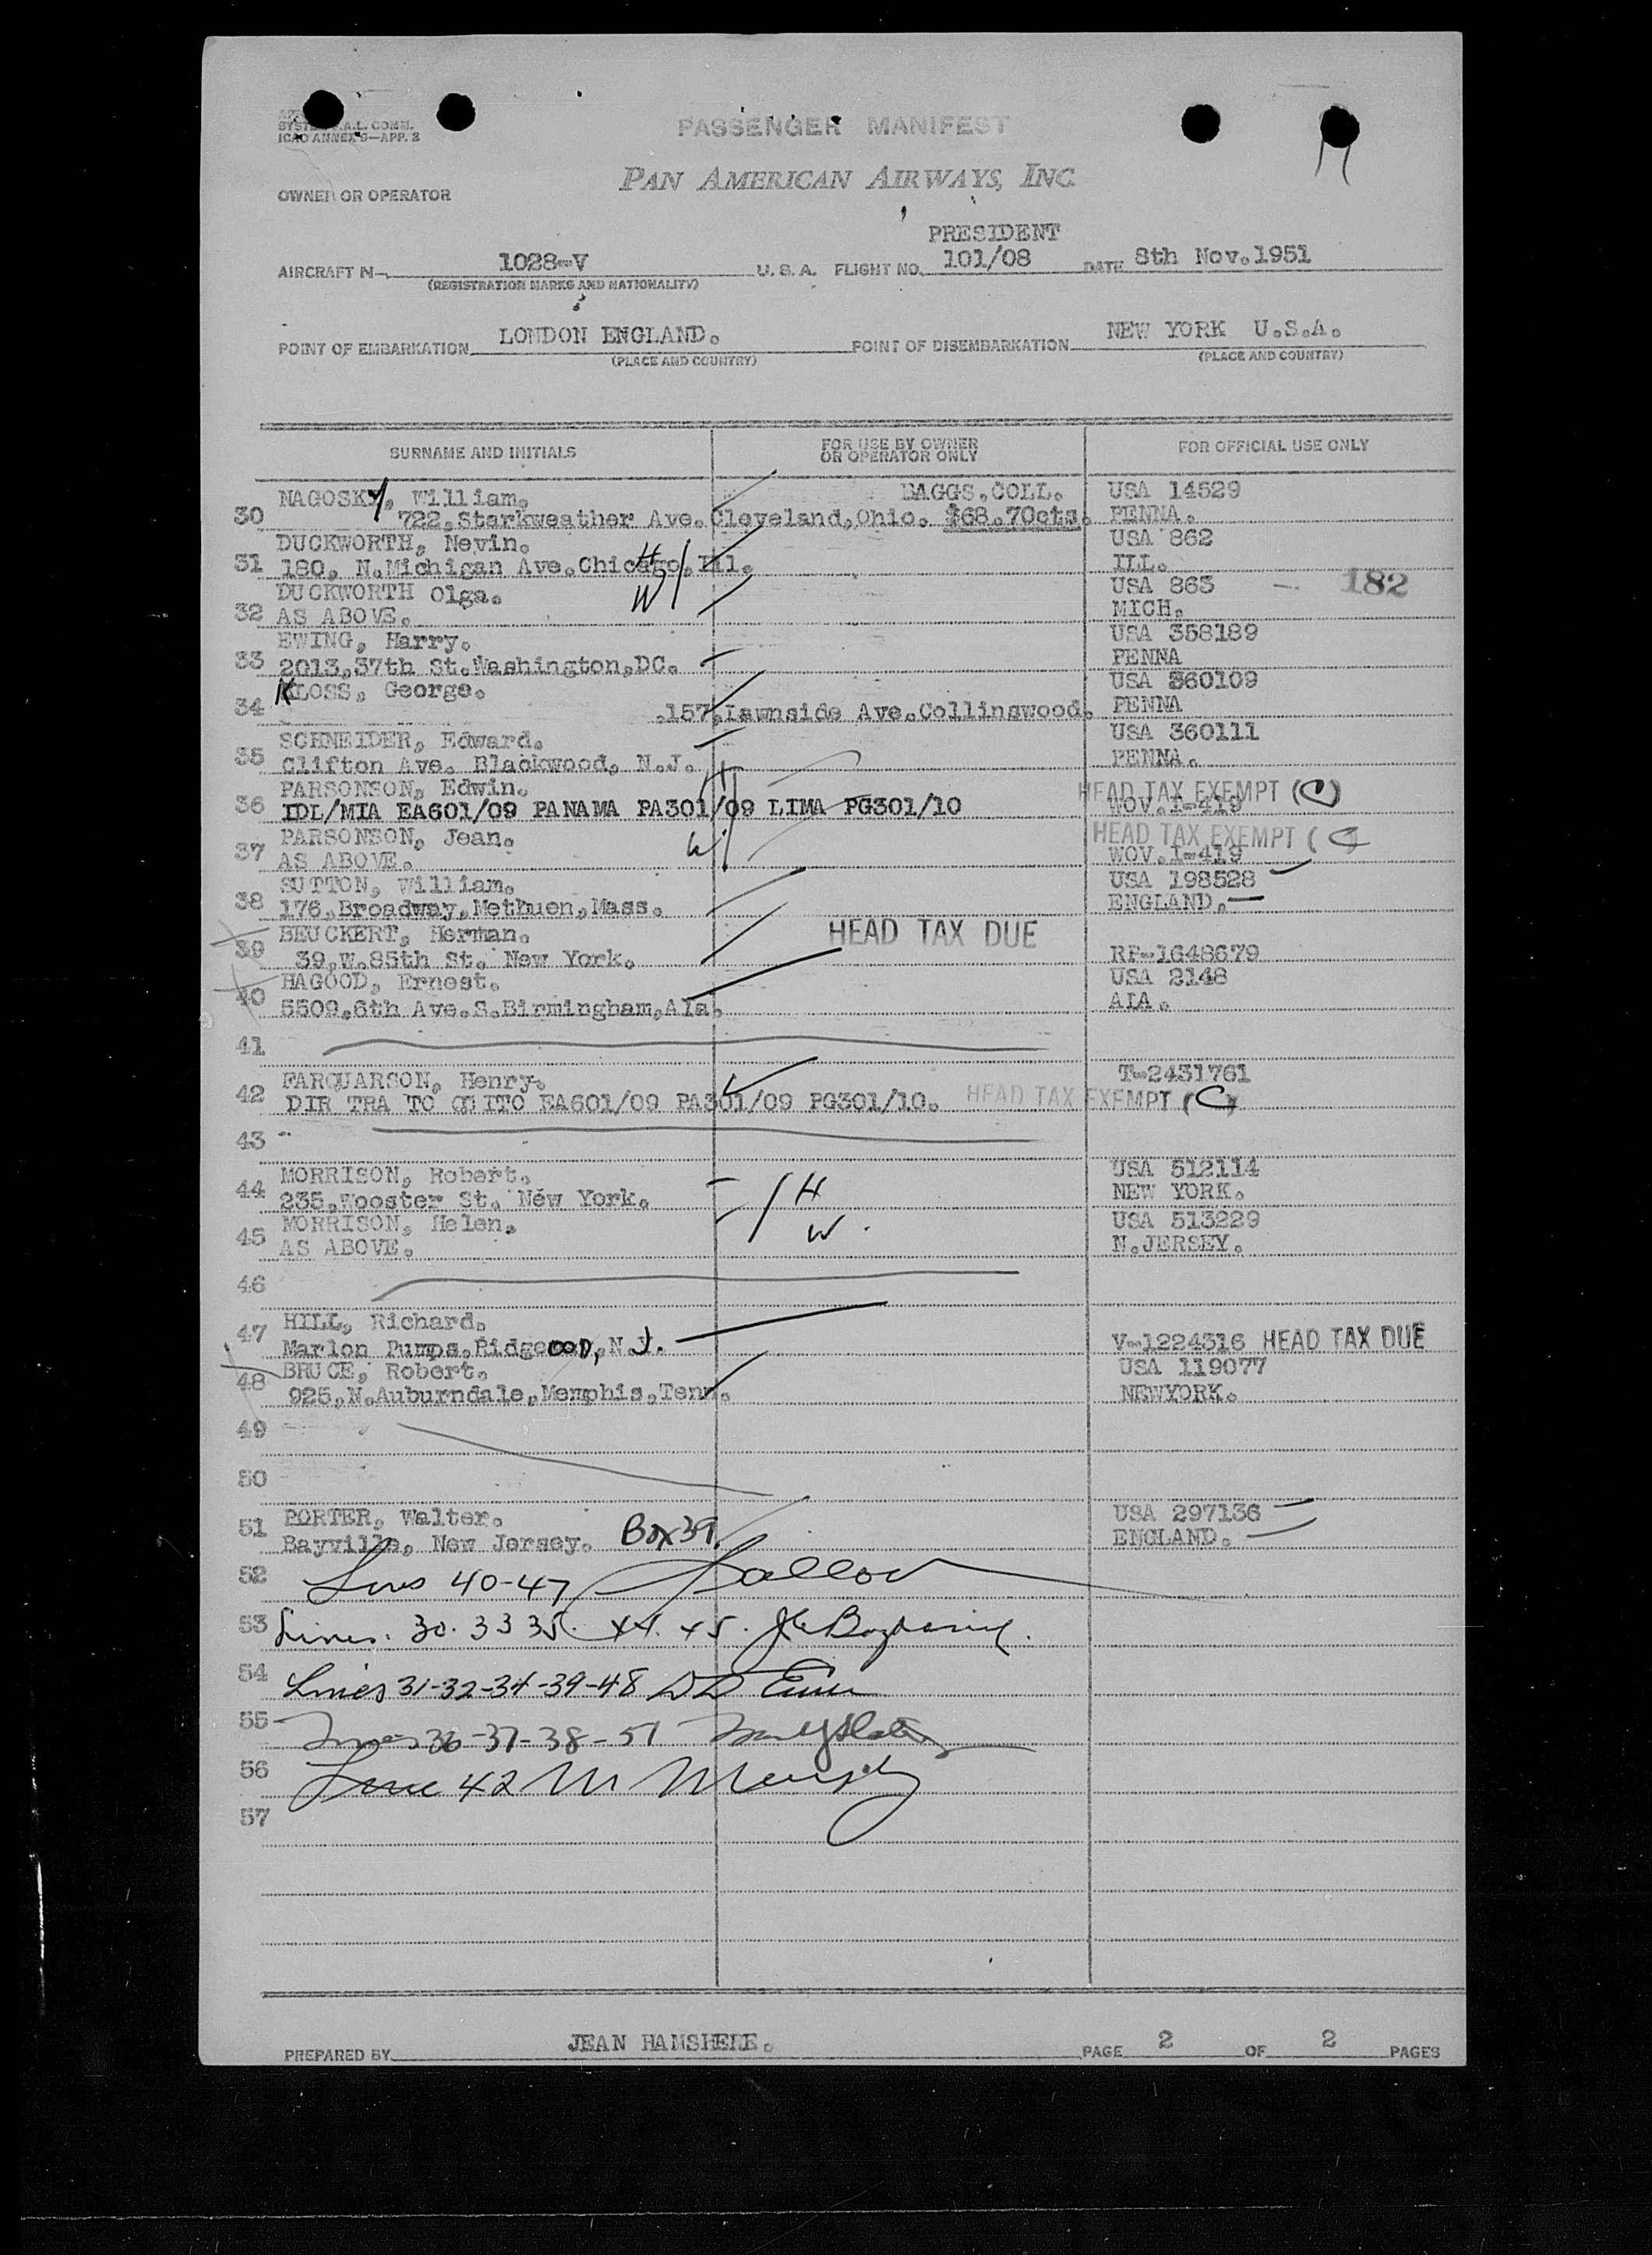 SYSTEM P.A.L. COMM.
ICAO ANNEX 9—APP. 2
PASSENGER MANIFEST
PAN AMERICAN AIRWAYS, INC.
OWNER OR OPERATOR
PRESIDENT
AIRCRAFT N— 1028-V U. S. A. FLIGHT NO. 101/08 DATE 8th Nov.1951
(REGISTRATION MARKS AND NATIONALITY)
POINT OF EMBARKATION LONDON ENGLAND. POINT OF DISEMBARKATION NEW YORK U.S.A.
(PLACE AND COUNTRY) (PLACE AND COUNTRY)
SURNAME AND INITIALS FOR USE BY OWNER OR OPERATOR ONLY FOR OFFICIAL USE ONLY
NAGOSKY, William. BAGGS.COLL. USA 14529
30 722,Starkweather Ave.Cleveland,Ohio. $68.70cts. PENNA.
DUCKWORTH, Nevin. USA 862
31 180, N.Michigan Ave.Chicago,Ill. H ILL.
DUCKWORTH Olga. W USA 863 — 182
32 AS ABOVE. MICH.
EWING, Harry. USA 358189
33 2013,37th St.Washington,DC. PENNA
KLOSS, George. USA 360109
34 157,Lawnside Ave.Collingswood. PENNA
SCHNEIDER, Edward. USA 360111
35 Clifton Ave. Blackwood, N.J. PENNA.
PARSONSON, Edwin. H HEAD TAX EXEMPT (C)
36 IDL/MIA EA601/09 PANAMA PA301/09 LIMA PG301/10 WOV.I-419
PARSONSON, Jean. W HEAD TAX EXEMPT (C
37 AS ABOVE. WOV.I-419
SUTTON, William. USA 198528
38 176,Broadway,Methuen,Mass. ENGLAND.
BEUCKERT, Herman. HEAD TAX DUE
39 39,W.85th St. New York. RP-1648679
HAGOOD, Ernest. USA 2148
40 5509,6th Ave.S.Birmingham,Ala. ALA.
41
FARQUARSON, Henry. T-2431761
42 DIR TRA TO QUITO EA601/09 PA301/09 PG301/10. HEAD TAX EXEMPT (C)
43
MORRISON, Robert. USA 512114
44 235,Wooster St. New York. H NEW YORK.
MORRISON, Helen. W. USA 513229
45 AS ABOVE. N.JERSEY.
46
HILL, Richard.
47 Marlon Pumps,RidgeOOD, N.J. V-1224316 HEAD TAX DUE
BRUCE, Robert. USA 119077
48 925,N.Auburndale,Memphis,Tenn. NEWYORK.
49
50
PORTER, Walter. USA 297136
51 Bayville, New Jersey. Box 39. ENGLAND.
52 Lines 40-47
53 Lines. 30. 33 35. 44. 45.
54 Lines 31-32-34-39-48
55 Lines 36-37-38-51
56 Line 42 M Murphy
57
PREPARED BY JEAN HAMSHERE. PAGE 2 OF 2 PAGES